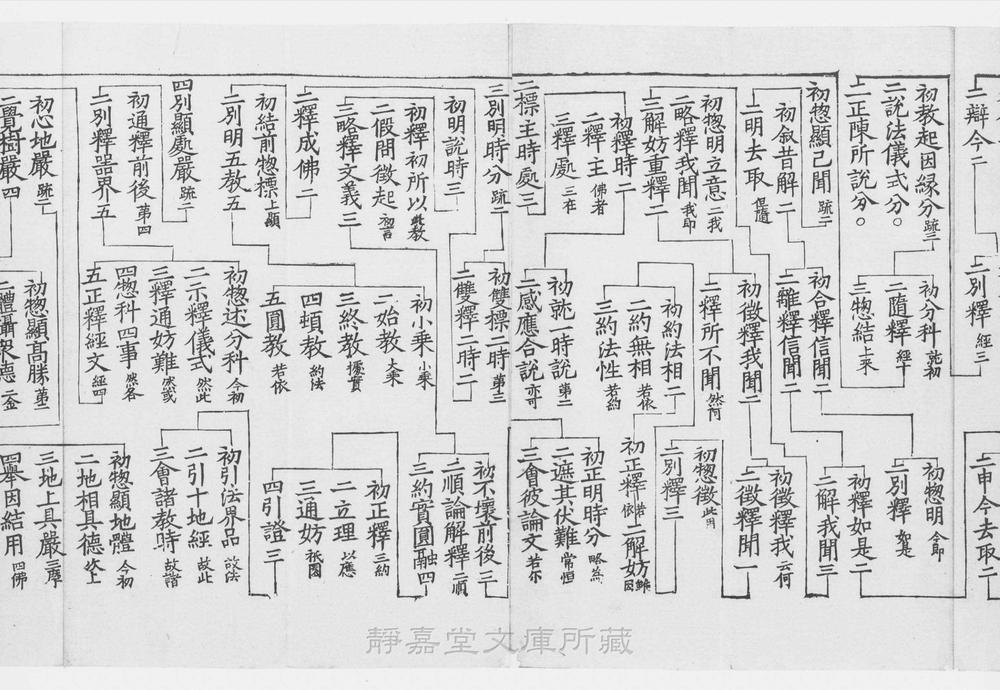 二辯今二
初教起因緣分 疏二
二說法儀式分。
二正陳所說分。
初惣顯己聞 疏二
初敘昔解二
二明去取 但隨
初惣明立意 二我
二略釋我聞 我即
三解妨重釋二
初釋時二
二釋主 佛者
三釋處 三在
二標主時處三
三別明時分 疏二
初明說時三
初釋初所以 此教
二假問徵起 初言
三略釋文義三
二釋成佛二
初結前惣標 上顯
二別明五教五
四別顯處嚴 疏二
初通釋前後 第四
二別釋器界五
初心地嚴 疏二
二覺樹嚴四
二別釋 經三
初分科 就初
二隨釋 經十
三惣結 上來
初合釋信聞二
二離釋信聞二
初徵釋我聞二
二釋所不聞 然阿
初約法相二
二約無相 若依
三約法性 若約
初就一時說 第二
二感應合說 亦可
初雙標二時 第三
二雙釋二時二
初小乘 小乘
二始教 大乘
三終教 據實
四頓教 約法
五圓教 若依
初惣述分科 今初
二示釋儀式 然此
三釋通妨難 然或
四惣科四事 然各
五正釋經文 經四
初惣顯高勝 第二
二體攝眾德
二申今去取二
初惣明 今即
二別釋 如是
初釋如是二
二解我聞三
初徵釋我 云何
二徵釋聞一
初惣徵 此用
二別釋三
初正釋 若依
二解妨
初正明時分 略為
二遮其伏難 常恒
三會彼論文 若尔
初不壞前後三
二順論解釋 二順
三約實圓融四
初正釋 三約
二立理 以應
三通妨 祇園
四引證三
初引法界品 故法
二引十地經 故此
三會諸教時 故諸
初惣顯地體 今初
二地相具德 次上
三地上具嚴 三摩
四舉因結用 四佛
靜嘉堂文庫所藏